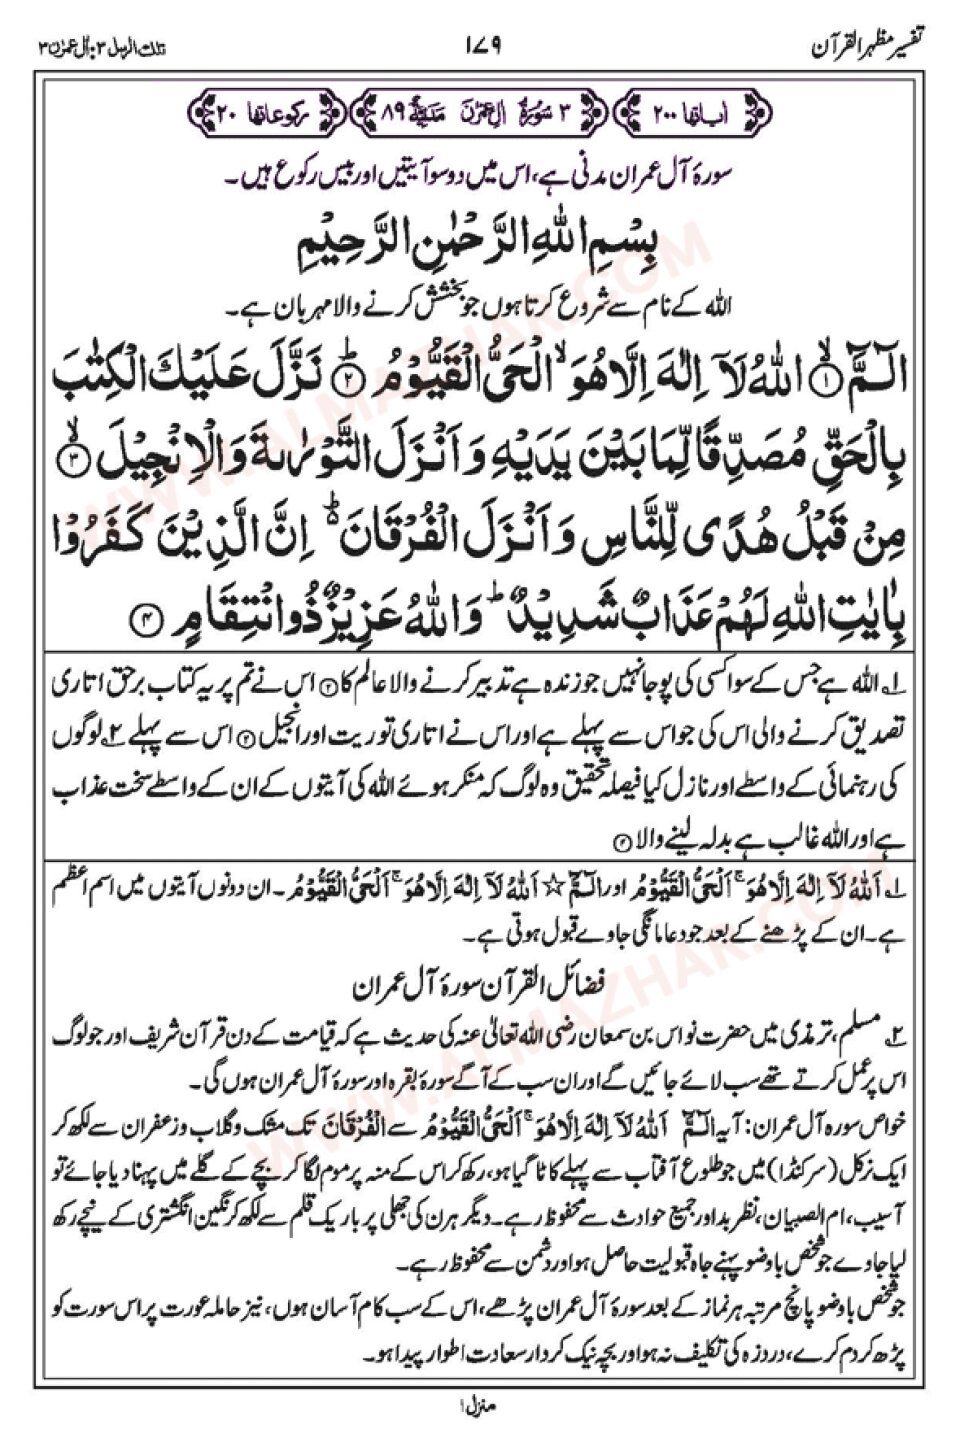 تفسیر مظہر القرآن
۱۷۹
تلک الرسل ۳ : اٰل عمرٰن ۳
اٰیاتھا ۲۰۰
۳ سُوْرَۃُ اٰلِ عِمْرٰنَ مَدَنِیَّۃٌ ۸۹
رکوعاتھا ۲۰
سورۂ آل عمران مدنی ہے، اس میں دو سو آیتیں اور بیس رکوع ہیں۔
بِسْمِ اللّٰهِ الرَّحْمٰنِ الرَّحِيْمِ
اللہ کے نام سے شروع کرتا ہوں جو بخشش کرنے والا مہربان ہے۔
الٓـمّٓ ۙ﴿۱﴾ اللّٰهُ لَاۤ اِلٰهَ اِلَّا هُوَ ۙ الْحَىُّ الْقَيُّوْمُ ؕ﴿۲﴾ نَزَّلَ عَلَيْكَ الْكِتٰبَ
بِالْحَقِّ مُصَدِّقًا لِّمَا بَيْنَ يَدَيْهِ وَاَنْزَلَ التَّوْرٰىةَ وَالْاِنْجِيْلَ ۙ﴿۳﴾
مِنْ قَبْلُ هُدًى لِّلنَّاسِ وَاَنْزَلَ الْفُرْقَانَ ؕ اِنَّ الَّذِيْنَ كَفَرُوْا
بِاٰيٰتِ اللّٰهِ لَهُمْ عَذَابٌ شَدِيْدٌ ؕ وَاللّٰهُ عَزِيْزٌ ذُو انْتِقَامٍ ﴿۴﴾
۱۔ اللہ ہے جس کے سوا کسی کی پوجا نہیں جو زندہ ہے تدبیر کرنے والا عالم کا ﴿۲﴾ اس نے تم پر یہ کتاب برحق اتاری
تصدیق کرنے والی اس کی جو اس سے پہلے ہے اور اس نے اتاری توریت اور انجیل ﴿۳﴾ اس سے پہلے ۲۔ لوگوں
کی رہنمائی کے واسطے اور نازل کیا فیصلہ تحقیق وہ لوگ کہ منکر ہوئے اللہ کی آیتوں کے ان کے واسطے سخت عذاب
ہے اور اللہ غالب ہے بدلہ لینے والا ﴿۴﴾
۱۔ اَللّٰهُ لَاۤ اِلٰهَ اِلَّا هُوَ ۚ اَلْحَىُّ الْقَيُّوْمُ اور الٓـمّٓ ☆ اَللّٰهُ لَاۤ اِلٰهَ اِلَّا هُوَ ۚ اَلْحَىُّ الْقَيُّوْمُ۔ ان دونوں آیتوں میں اسم اعظم
ہے۔ ان کے پڑھنے کے بعد جو دعا مانگی جاوے قبول ہوتی ہے۔
فضائل القرآن سورۂ آل عمران
۲۔ مسلم، ترمذی میں حضرت نواس بن سمعان رضی اللہ تعالیٰ عنہ کی حدیث ہے کہ قیامت کے دن قرآن شریف اور جو لوگ
اس پر عمل کرتے تھے سب لائے جائیں گے اور ان سب کے آگے سورۂ بقرہ اور سورۂ آل عمران ہوں گی۔
خواص سورہ آل عمران: آیہ الٓـمّٓ اَللّٰهُ لَاۤ اِلٰهَ اِلَّا هُوَ ۚ اَلْحَىُّ الْقَيُّوْمُ سے الْفُرْقَانَ تک مشک و گلاب و زعفران سے لکھ کر
ایک نرکل (سرکنڈا) میں جو طلوع آفتاب سے پہلے کاٹا گیا ہو، رکھ کر اس کے منہ پر موم لگا کر بچے کے گلے میں پہنا دیا جائے تو
آسیب، ام الصبیان، نظر بد اور جمیع حوادث سے محفوظ رہے۔ دیگر ہرن کی جھلی پر باریک قلم سے لکھ کر نگین انگشتری کے نیچے رکھ
لیا جاوے جو شخص باوضو پہنے جاہ قبولیت حاصل ہو اور دشمن سے محفوظ رہے۔
جو شخص باوضو پانچ مرتبہ ہر نماز کے بعد سورۂ آل عمران پڑھے، اس کے سب کام آسان ہوں، نیز حاملہ عورت پر اس سورت کو
پڑھ کر دم کرے، درد زہ کی تکلیف نہ ہو اور بچہ نیک کردار سعادت اطوار پیدا ہو۔
منزل ۱
WWW.ALMAZHAR.COM
WWW.ALMAZHAR.COM